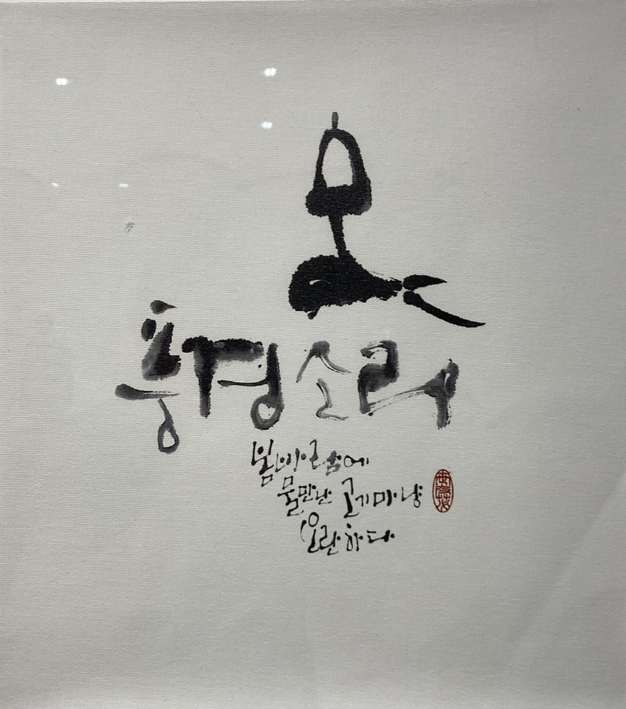 풍경소리
봄바람에
물만난 고기마냥
요란하다